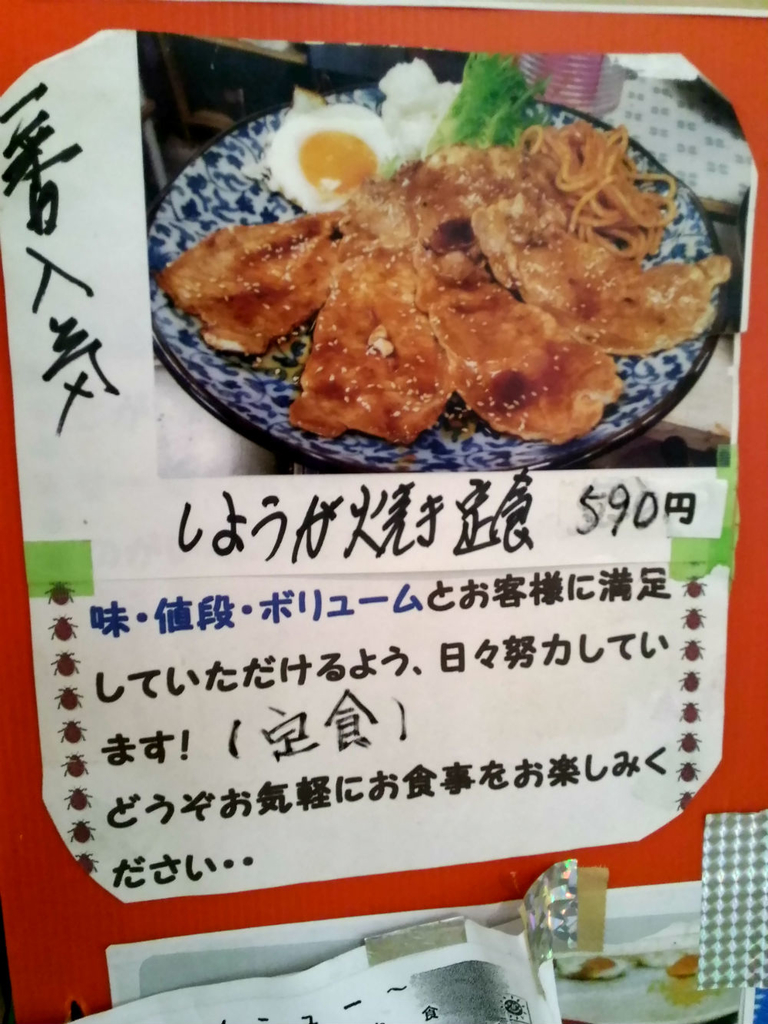 一番人気
しょうが焼き定食 590円
味・値段・ボリュームとお客様に満足
していただけるよう、日々努力してい
ます！(定食)
どうぞお気軽にお食事をお楽しみく
ださい・・
食